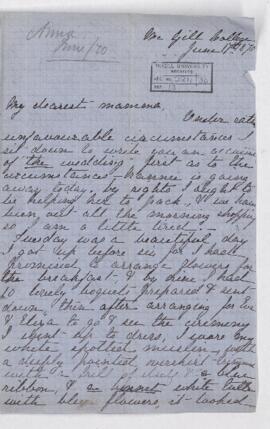 Anna
June/70
McGill College
June 17th 1870
McGILL UNIVERSITY
ARCHIVES
ACC. NO.
REF.
My dearest mamma,
Under rather
unfavourable circumstances I
sit down to write you an account
of the wedding, first as to the
circumstances - is going
away today, by rights I ought to
be helping her to pack, & we have
been out all the morning shopping
so I am a little tired.
Tuesday was a beautiful day
I got up before six for I had
promised to arrange flowers for
the breakfast & by nine I had
10 lovely boquets prepared & sent
down, then after arranging for Eva
& Eliza to go & see the ceremony
I went up to dress, I wore my
white spotted muslin, with
a deeply pointed overskirt
with a frill of & blue
ribbon, & a white
with blue flowers, it looked